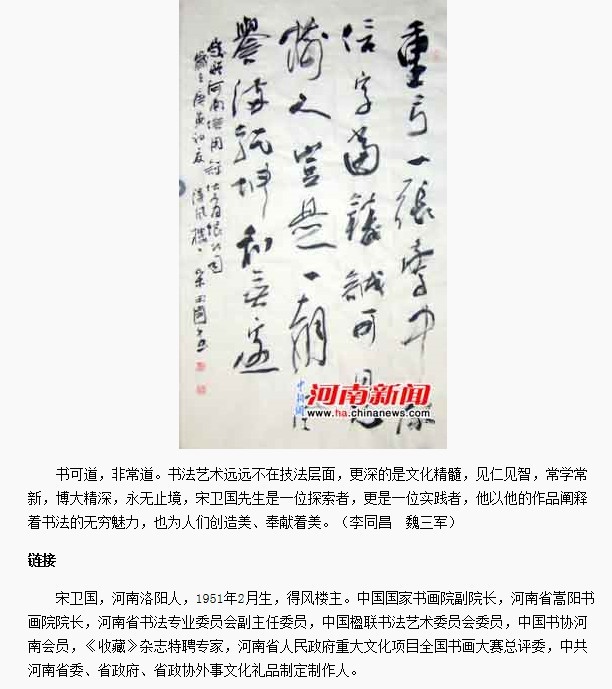 一張
信字當頭誠可見
人豈是一朝
譽滿乾坤利無邊
河南
庚寅初夏
得風樓
中新网
河南新闻
www.ha.chinanews.com
书可道，非常道。书法艺术远远不在技法层面，更深的是文化精髓，见仁见智，常学常
新，博大精深，永无止境，宋卫国先生是一位探索者，更是一位实践者，他以他的作品阐释
着书法的无穷魅力，也为人们创造美、奉献着美。（李同昌　魏三军）
链接
宋卫国，河南洛阳人，1951年2月生，得风楼主。中国国家书画院副院长，河南省嵩阳书
画院院长，河南省书法专业委员会副主任委员，中国楹联书法艺术委员会委员，中国书协河
南会员，《收藏》杂志特聘专家，河南省人民政府重大文化项目全国书画大赛总评委，中共
河南省委、省政府、省政协外事文化礼品制定制作人。